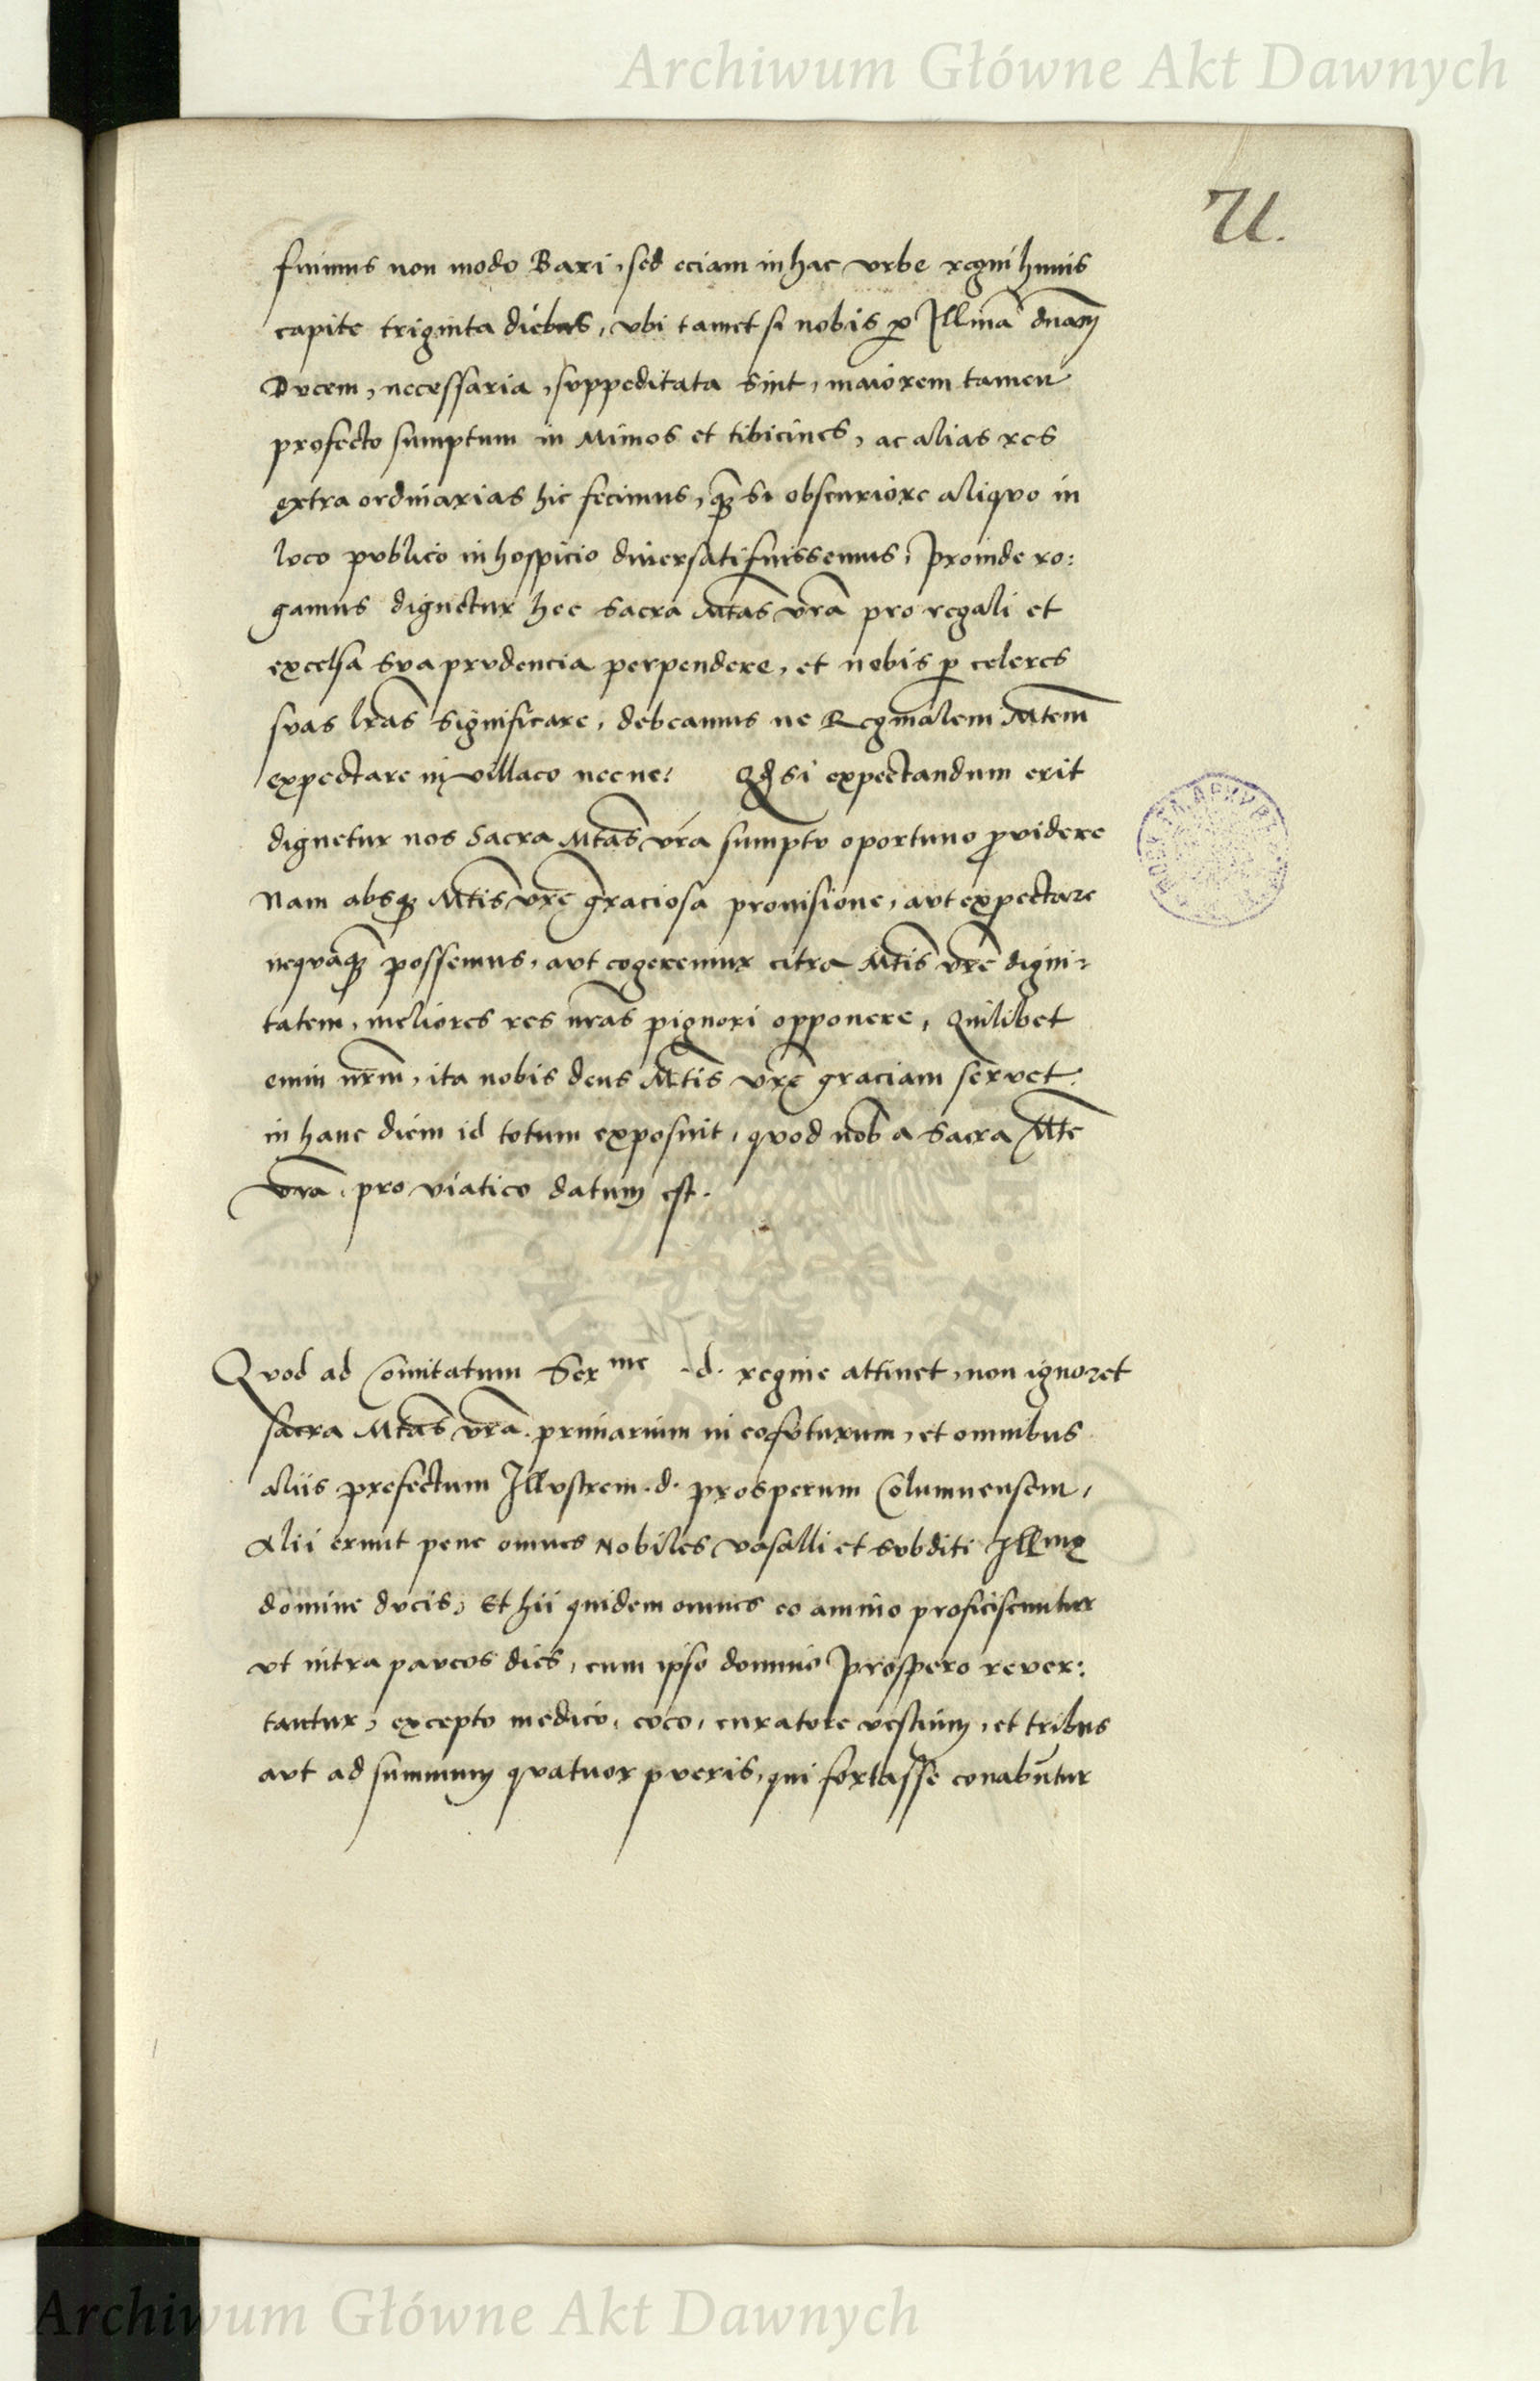 Archiwum Główne Akt Dawnych
U.
fuimus non modo Bari, sed eciam in hac vrbe regni huius
capite triginta diebus, vbi tametsi nobis ꝑ Illmā dnam
Ducem, necessaria, suppeditata sint, maiorem tamen
profecto sumptum in Mimos et tibicines, ac alias res
extra ordinarias hic fecimus, qȝ̄ si obscuriore aliquo in
loco publico in hospicio diuersati fuissemus, Proinde ro:
gamus dignetur hec Sacra Mtas vrā pro regali et
excelsa sua prudencia perpendere, et nobis ꝑ celeres
suas lrās significare, debeamus ne Reginalem Mtem
expectare in villaco necne: Qd si expectandum erit
dignetur nos Sacra Mtas vrā sumptu oportuno ꝓvidere
Nam absqȝ Mtis vrē graciosa prouisione, aut expectare
nequaqȝ̄ possemus, aut cogeremur citra Mtis vrē digni:
tatem, meliores res nrās pignori opponere, Quilibet
enim nrm̄, ita nobis deus Mtis vrē graciam seruet:
in hanc diem id totum exposuit, quod nob a Sacra Mte
vrā. pro viatico datum est.
Quod ad Comitatum Serme .d. regine attinet, non ignoret
sacra Mtas vrā. primarium in eo futurum, et omnibus
aliis prefectum Illustrem .d. prosperum Columnensem,
Alii erunt pene omnes Nobiles vasalli et subditi Illmę
domine ducis, Et hii quidem omnes eo animo proficiscuntur
vt intra paucos dies, cum ipso domino Prospero reuer:
tantur, excepto medico, coco, curatore vestium, et tribus
aut ad summum quatuor pueris, qui fortasse conabūtur
Archiwum Główne Akt Dawnych